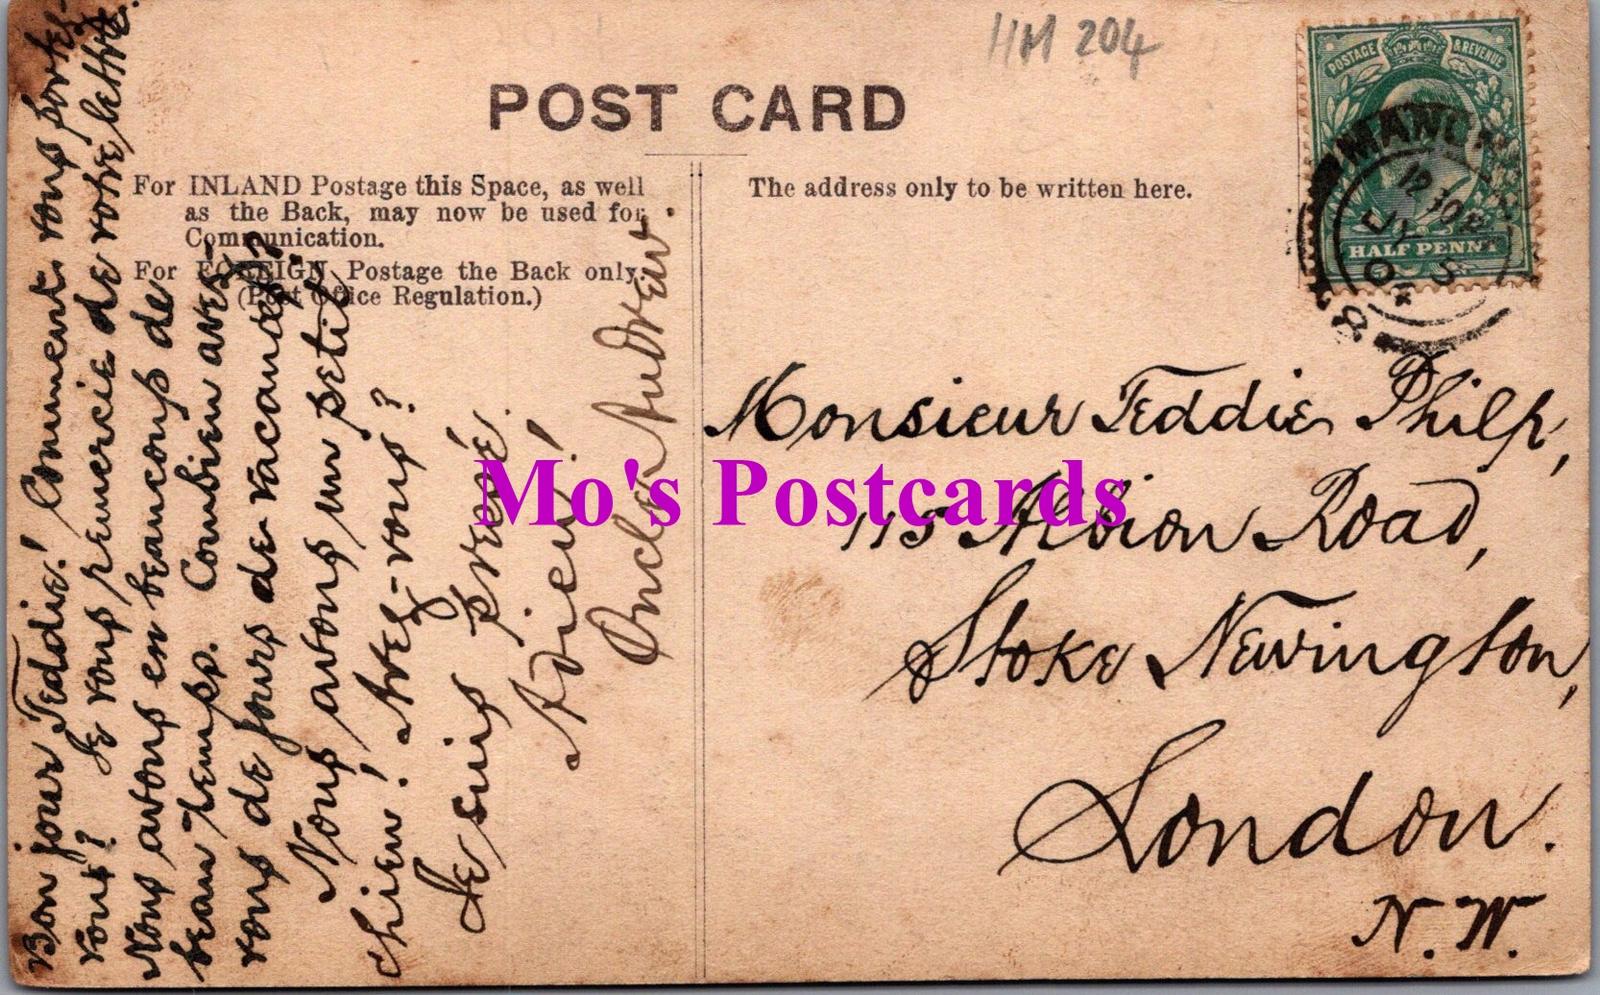 HM 204
POST CARD
For INLAND Postage this Space, as well
as the Back, may now be used for
Communication.
For FOREIGN Postage the Back only.
(Post Office Regulation.)
The address only to be written here.
POSTAGE & REVENUE
HALF PENNY
12 30 P
JY 5
Bon jour Teddie! Comment vous portez-
vous? Je vous remercie de votre lettre.
Nous avons en beaucoup de
beau temps. Combien avez-
vous de jours de vacances?
Nous avons un petit
chien! Avez-vous?
Je suis pressé.
Adieu!
Oncle Andrew.
Monsieur Teddie Philp,
115 Albion Road,
Stoke Newington,
London.
N.W.
Mo's Postcards